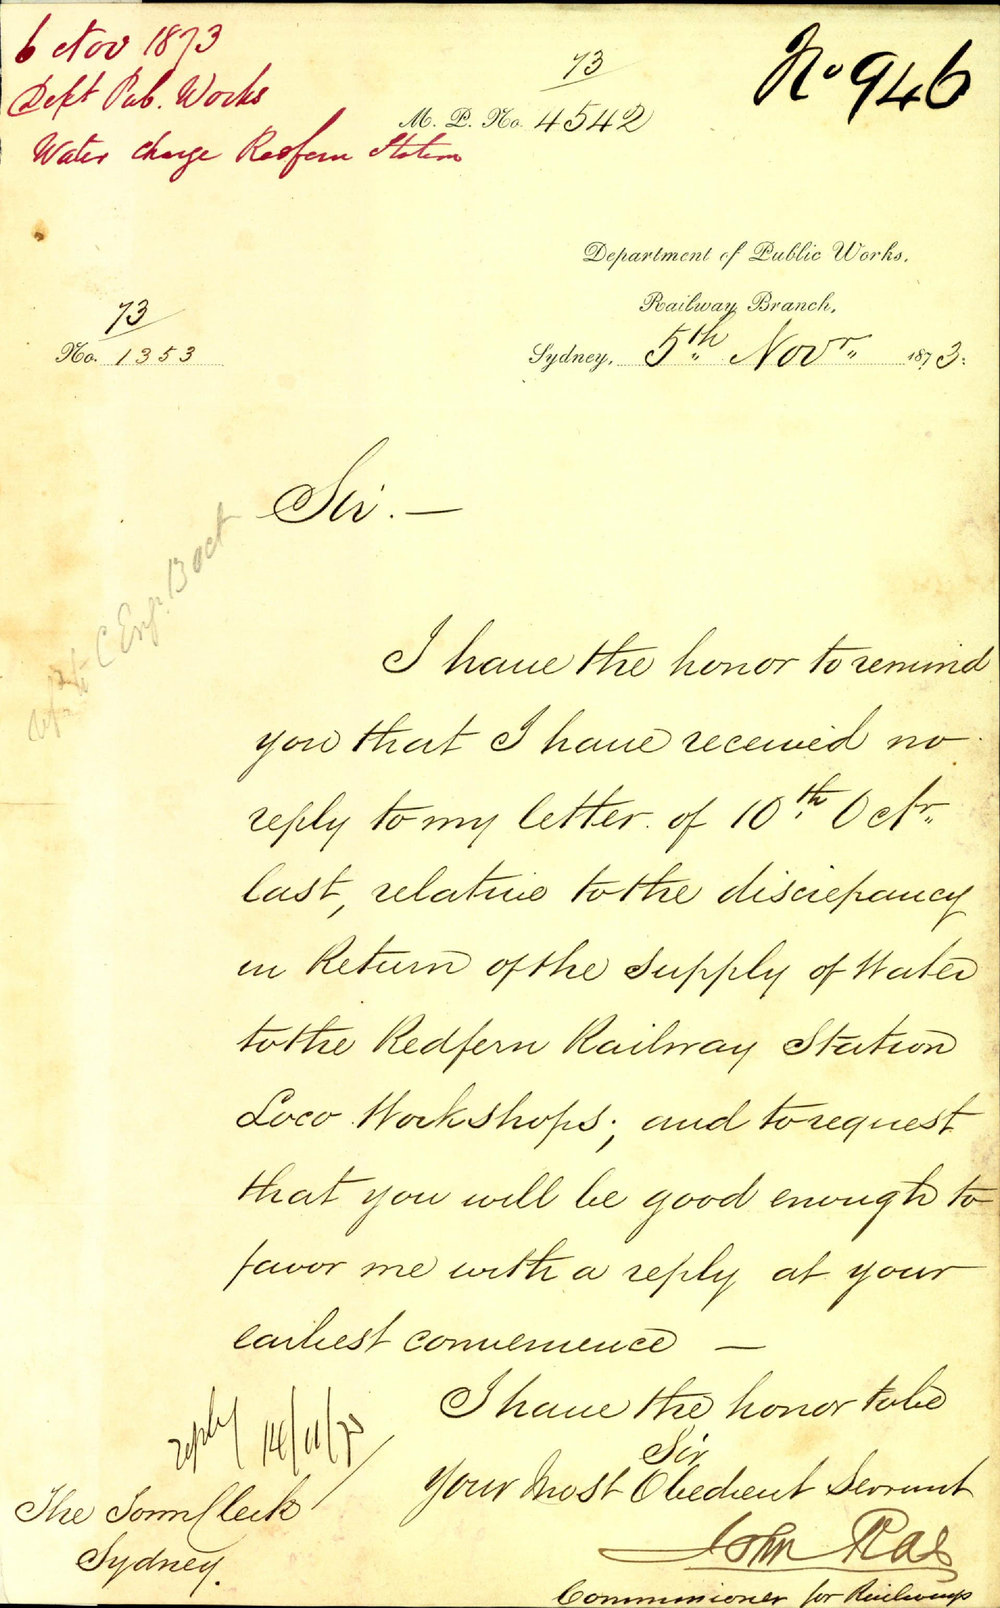 6 Nov 1873
Dept Pub. Works
Water Charge Redfern Station
73
M. P. No. 4542
No 946
Department of Public Works,
Railway Branch,
Sydney, 5th Novr 1873.
73
No. 1353
Sir. —
C Eng. 13 Oct
I have the honor to remind
you that I have received no
reply to my letter of 10th Octr
last, relative to the discrepancy
in Return of the Supply of Water
to the Redfern Railway Station
Loco Workshops; and to request
that you will be good enough to
favor me with a reply at your
earliest convenience —
I have the honor to be
Sir
Your Most Obedient Servant
John Rae
Commissioner for Railways
reply 14/11/73
The Town Clerk
Sydney.